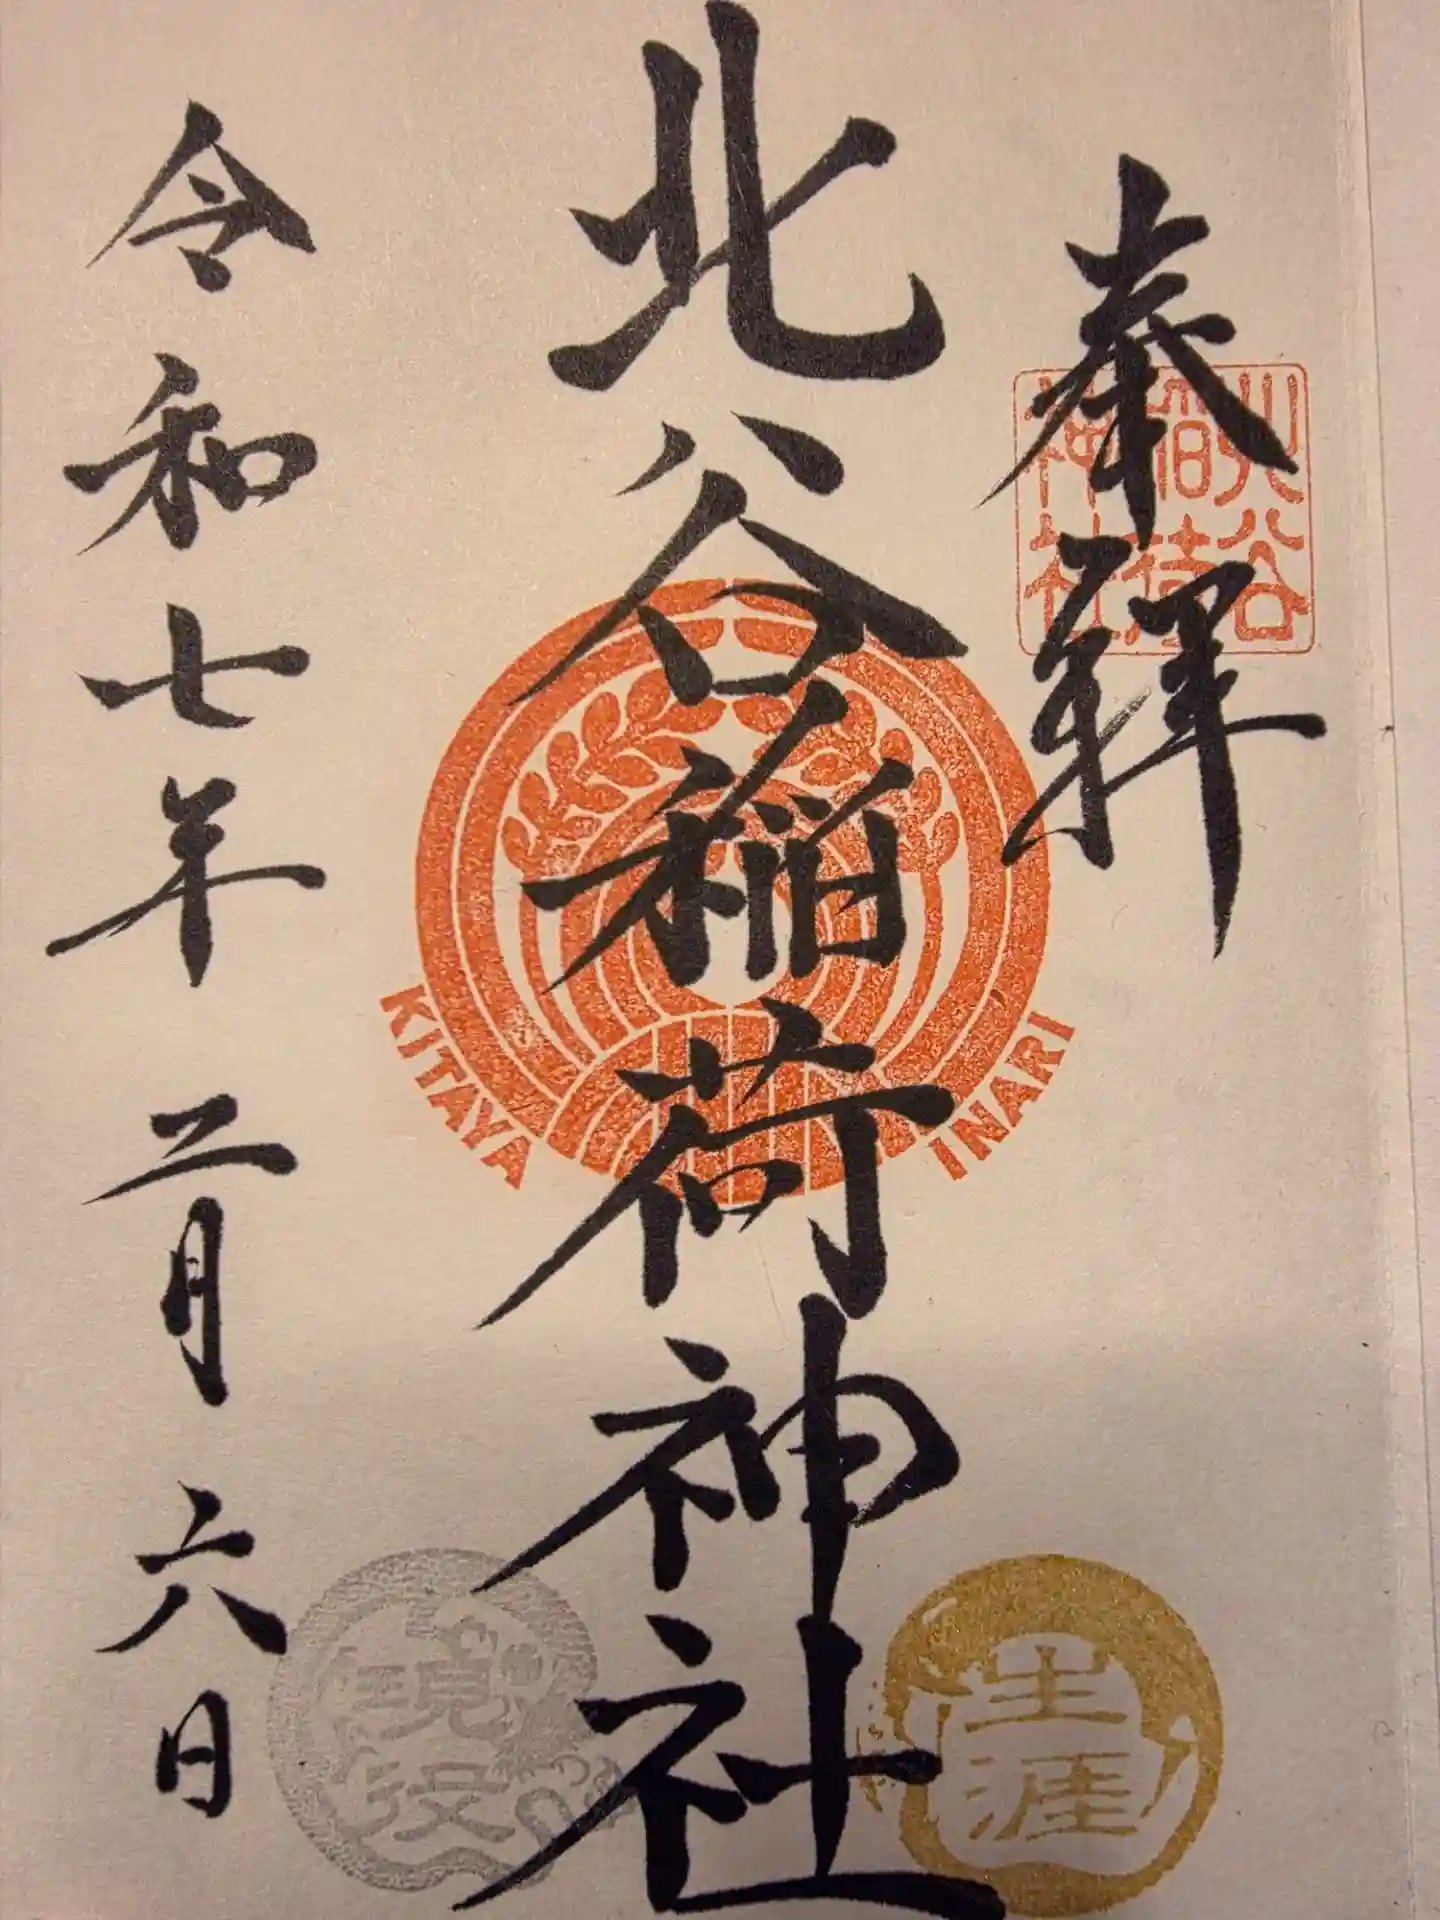 奉拝
北谷稲荷神社
北谷
稲荷
神社
KITAYA INARI
令和七年 二月六日
生涯
現役